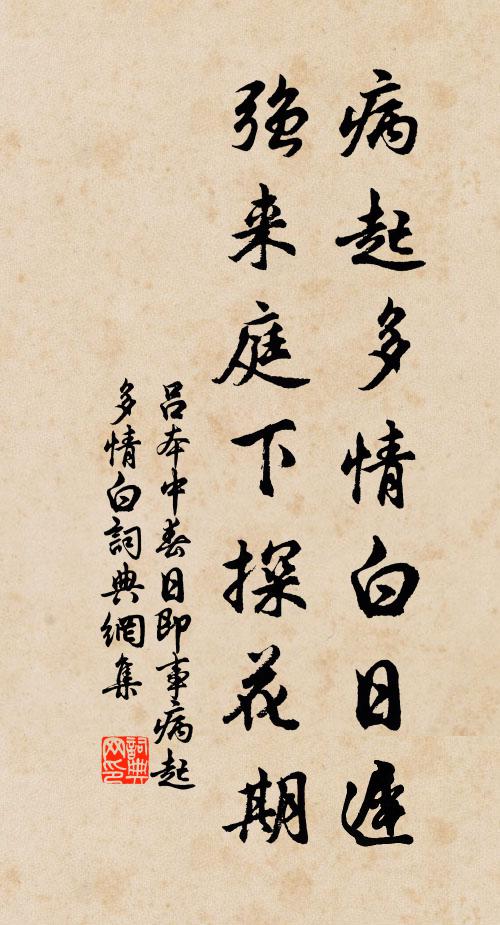 病起多情白日遲
强来庭下探花期
吕本中春日即事病起
多情白詞典網集
詞典網印